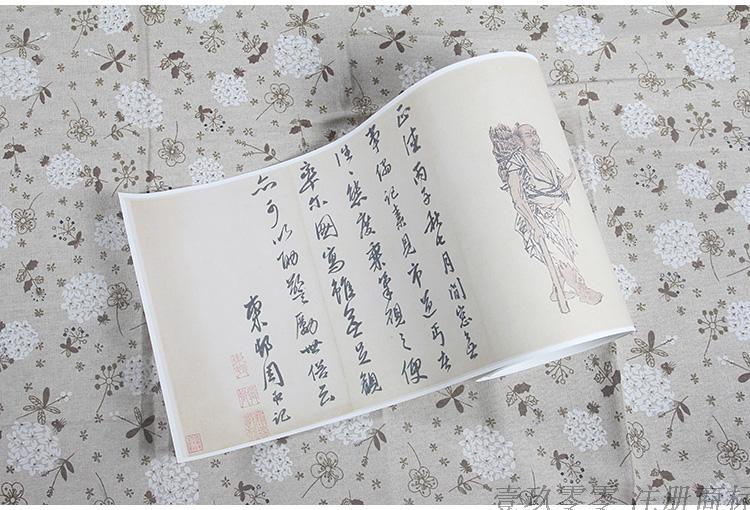 正德丙子秋七月閒窓無
事偶記素見市道丐者
往々態度乘筆硯之便
率尔圖寫雖無足觀
亦可以助警勵世俗云
東邨周臣記
壹玖零零 注册商标